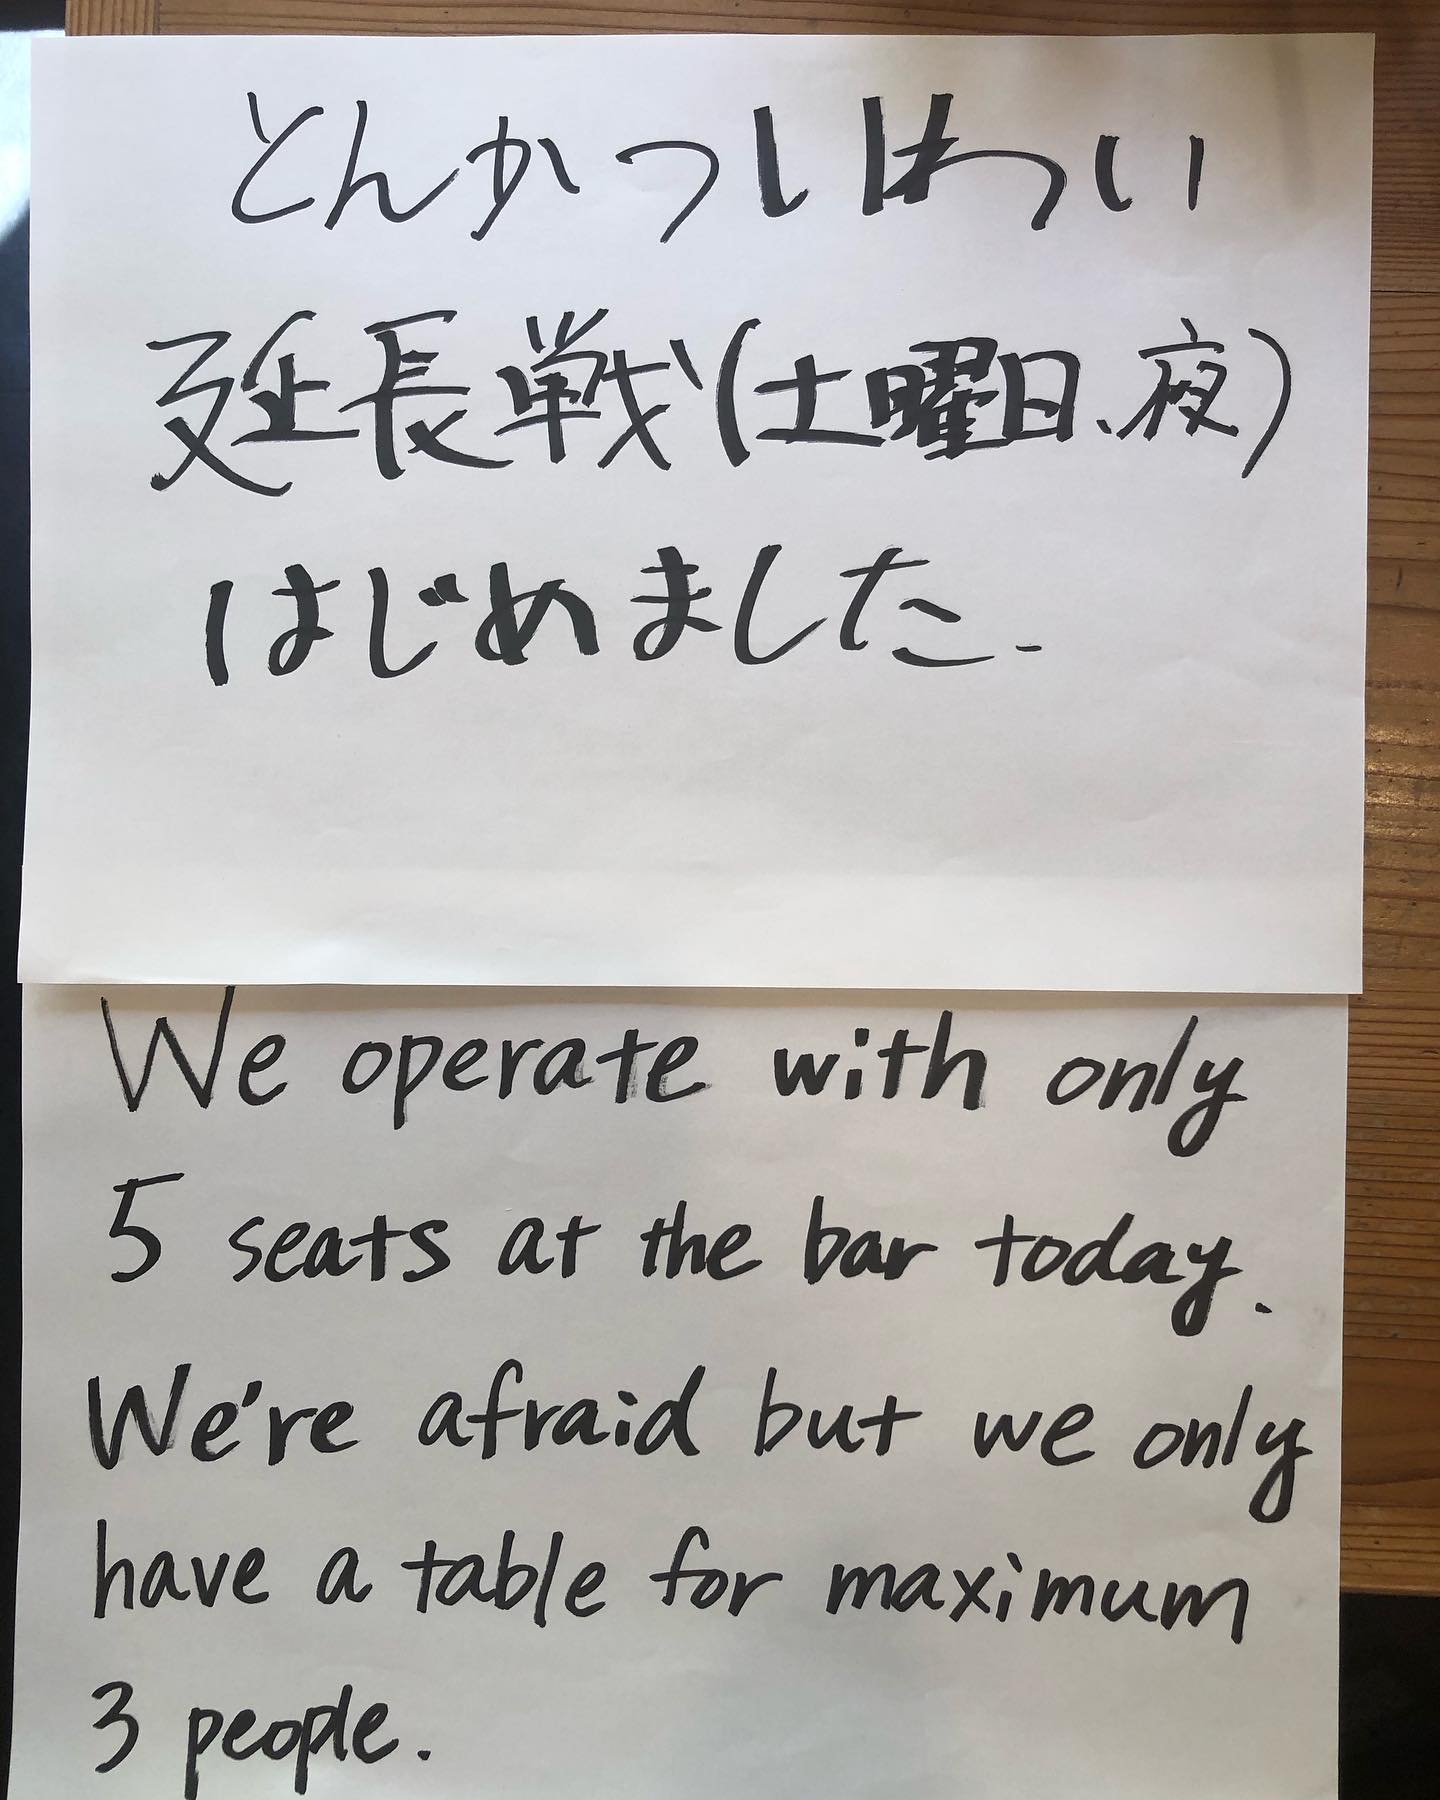 とんかついわい
延長戦(土曜日、夜)
はじめました.
We operate with only
5 seats at the bar today.
We're afraid but we only
have a table for maximum
3 people.